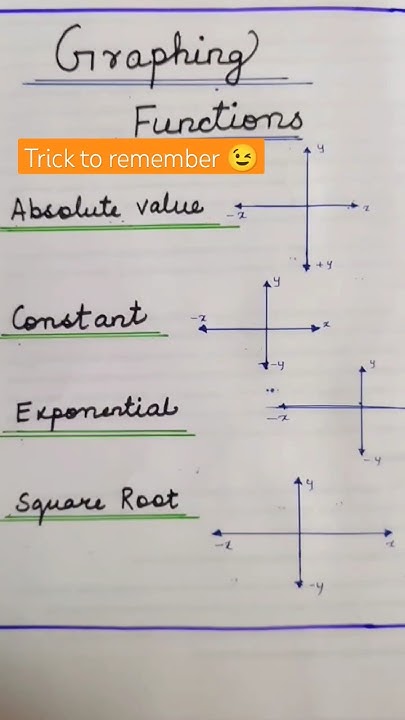 Graphing
Functions
Trick to remember 😉
y
Absolute value
-x
x
+y
y
Constant
-x
x
-y
y
Exponential
-x
-y
Square Root
y
-x
x
-y